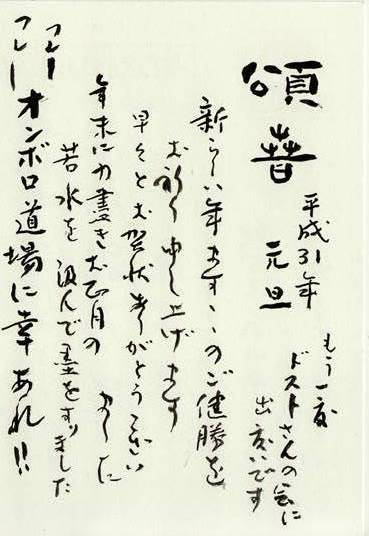 頌春
平成31年
元旦
もう一度
ドストさんの会に
出度いです
新らしい年ますますのご健勝を
お祈り申し上げます
早々とお賀状ありがとうござい
ました
年末に力盡きお正月の
若水を汲んで墨をすりました
フレー
フレー オンボロ道場に幸あれ!!